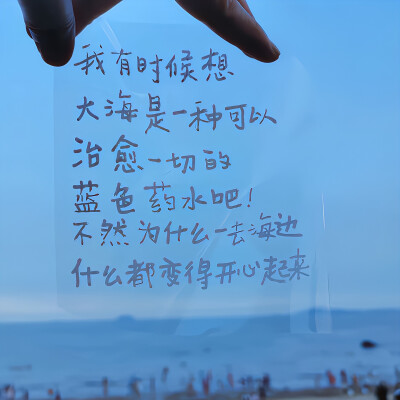 我有时候想
大海是一种可以
治愈一切的
蓝色药水吧!
不然为什么一去海边
什么都变得开心起来